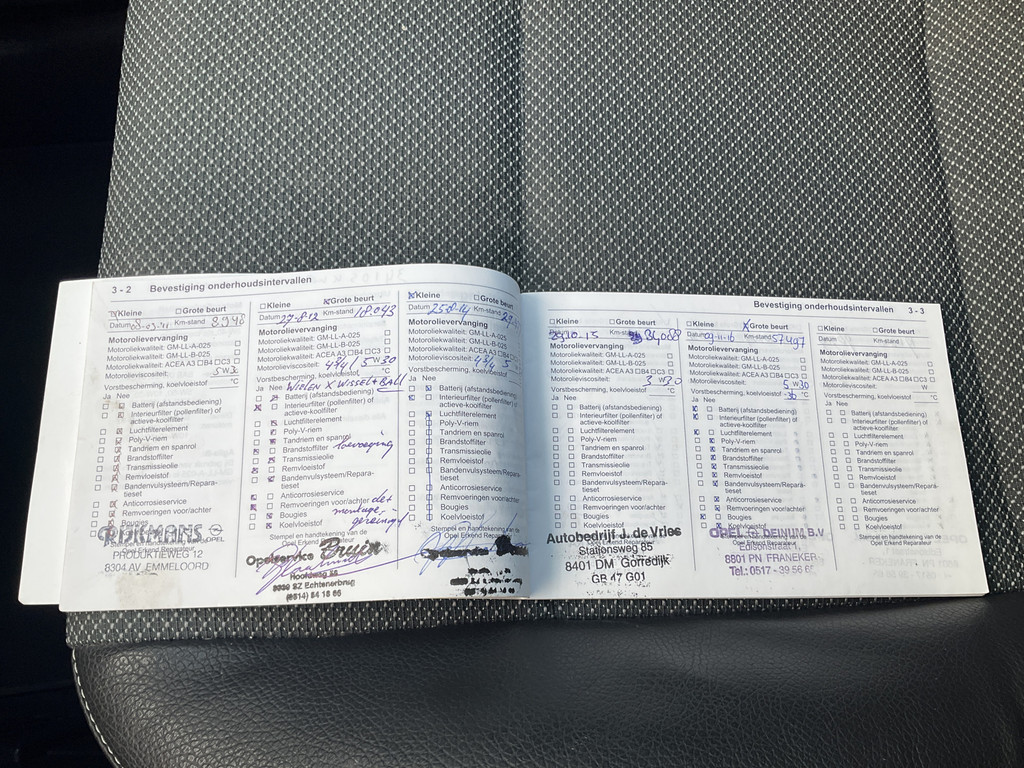 3 - 2 Bevestiging onderhoudsintervallen
Kleine Grote beurt
Datum Km-stand 8.948
Motorolievervanging
Motoroliekwaliteit: GM-LL-A-025
Motoroliekwaliteit: GM-LL-B-025
Motoroliekwaliteit: ACEA A3 B4 C3
Motorolieviscositeit: 5W30
Vorstbescherming, koelvloeistof °C
Ja Nee
Batterij (afstandsbediening)
Interieurfilter (pollenfilter) of
actieve-koolfilter
Luchtfilterelement
Poly-V-riem
Tandriem en spanrol
Brandstoffilter
Transmissieolie
Remvloeistof
Bandenvulsysteem/Repara-
tieset
Anticorrosieservice
Remvoeringen voor/achter
Bougies
Koelvloeistof
RIJKMANS OPEL
Opel Erkend Reparateur
PRODUKTIEWEG 12
8304 AV EMMELOORD
Kleine Grote beurt
Datum 27-8-12 Km-stand 18.043
Motorolievervanging
Motoroliekwaliteit: GM-LL-A-025
Motoroliekwaliteit: GM-LL-B-025
Motoroliekwaliteit: ACEA A3 B4 C3
Motorolieviscositeit: 5W30
Vorstbescherming, koelvloeistof °C
Ja Nee WIELEN X WISSEL + BALL
Batterij (afstandsbediening)
Interieurfilter (pollenfilter) of
actieve-koolfilter
Luchtfilterelement
Poly-V-riem
Tandriem en spanrol
Brandstoffilter
Transmissieolie
Remvloeistof
Bandenvulsysteem/Repara-
tieset
Anticorrosieservice
Remvoeringen voor/achter
Bougies
Koelvloeistof
Stempel en handtekening van de
Opel Erkend Reparateur
Opelservice Bruin
Hoofdweg
SZ Echtenerbrug
(0514) 54 18 65
Kleine Grote beurt
Datum 25-8-14 Km-stand
Motorolievervanging
Motoroliekwaliteit: GM-LL-A-025
Motoroliekwaliteit: GM-LL-B-025
Motoroliekwaliteit: ACEA A3
Motorolieviscositeit:
Vorstbescherming, koelvloeistof
Ja Nee
Batterij (afstandsbediening)
Interieurfilter (pollenfilter) of
actieve-koolfilter
Luchtfilterelement
Poly-V-riem
Tandriem en spanrol
Brandstoffilter
Transmissieolie
Remvloeistof
Bandenvulsysteem/Repara-
tieset
Anticorrosieservice
Remvoeringen voor/achter
Bougies
Koelvloeistof
Stempel en handtekening van de
Opel Erkend Reparateur
Bevestiging onderhoudsintervallen 3 - 3
Kleine Grote beurt
Motorolievervanging
Motoroliekwaliteit: GM-LL-A-025
Motoroliekwaliteit: GM-LL-B-025
Motoroliekwaliteit: ACEA A3 B4 C3
Motorolieviscositeit:
Vorstbescherming, koelvloeistof °C
Ja Nee
Batterij (afstandsbediening)
Interieurfilter (pollenfilter) of
actieve-koolfilter
Luchtfilterelement
Poly-V-riem
Tandriem en spanrol
Brandstoffilter
Transmissieolie
Remvloeistof
Bandenvulsysteem/Repara-
tieset
Anticorrosieservice
Remvoeringen voor/achter
Bougies
Koelvloeistof
Autobedrijf J. de Vries
Stationsweg 85
8401 DM Gorredijk
GB 47 G01
Kleine Grote beurt
Datum 09-11-16 Km-stand 57497
Motorolievervanging
Motoroliekwaliteit: GM-LL-A-025
Motoroliekwaliteit: GM-LL-B-025
Motoroliekwaliteit: ACEA A3 B4 C3
Motorolieviscositeit: 5 W 30
Vorstbescherming, koelvloeistof -36 °C
Ja Nee
Batterij (afstandsbediening)
Interieurfilter (pollenfilter) of
actieve-koolfilter
Luchtfilterelement
Poly-V-riem
Tandriem en spanrol
Brandstoffilter
Transmissieolie
Remvloeistof
Bandenvulsysteem/Repara-
tieset
Anticorrosieservice
Remvoeringen voor/achter
Bougies
Koelvloeistof
B.V.
Edisonstraat
8801 PN FRANEKER
Tel.: 0517 - 39 56
Kleine Grote beurt
Datum Km-stand
Motorolievervanging
Motoroliekwaliteit: GM-LL-A-025
Motoroliekwaliteit: GM-LL-B-025
Motoroliekwaliteit: ACEA A3 B4 C3
Motorolieviscositeit: W
Vorstbescherming, koelvloeistof °C
Ja Nee
Batterij (afstandsbediening)
Interieurfilter (pollenfilter) of
actieve-koolfilter
Luchtfilterelement
Poly-V-riem
Tandriem en spanrol
Brandstoffilter
Transmissieolie
Remvloeistof
Bandenvulsysteem/Repara-
tieset
Anticorrosieservice
Remvoeringen voor/achter
Bougies
Koelvloeistof
Stempel en handtekening van de
Opel Erkend Reparateur